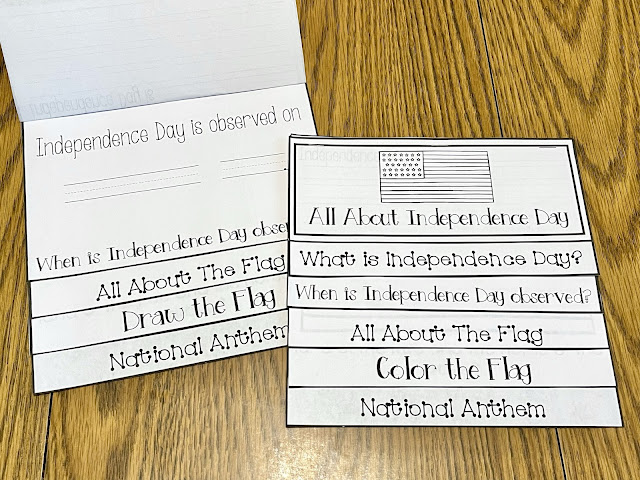 Independence Day is observed on
When is Independence Day obser
All About The Flag
Draw the Flag
National Anthem
All About Independence Day
What is Independence Day?
When is Independence Day observed?
All About The Flag
Color the Flag
National Anthem